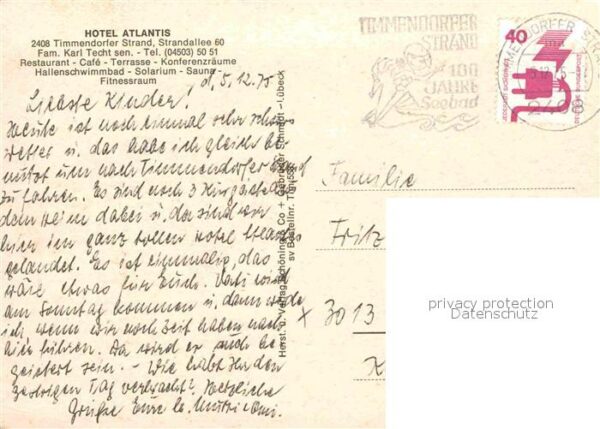 HOTEL ATLANTIS
2408 Timmendorfer Strand, Strandallee 60
Fam. Karl Techt sen. - Tel. (04503) 50 51
Restaurant - Café - Terrasse - Konferenzräume
Hallenschwimmbad - Solarium - Sauna -
Fitnessraum
d. 5.12.75
Liebste Kinder!
Heute ist noch einmal sehr schön
Wetter u. das habe ich gleich be-
nutzt um nach Timmendorfer Strand
zu fahren. Es sind noch 3 Kurgäste aus
dem Heim dabei u. da sind wir
hier im ganz tollen Hotel Atlantis
gelandet. Es ist einmalig, das
wäre etwas für Euch. Vati wird
am Sonntag kommen u. dann werde
ich, wenn wir noch Zeit haben nach
hier führen. Da wird er auch be-
geistert sein. - Wie habt Ihr den
gestrigen Tag verbracht? Herzliche
Grüße Eure lb. Mutti u. Omi.
Herst. u. Verlag Schöning & Co + Gebrüder Schmidt - Lübeck
sv Bestellnr. Tim
TIMMENDORFER
STRAND
100
JAHRE
Seebad
40
DEUTSCHE BUNDESPOST
Familie
Fritz
x 3013
privacy protection
Datenschutz